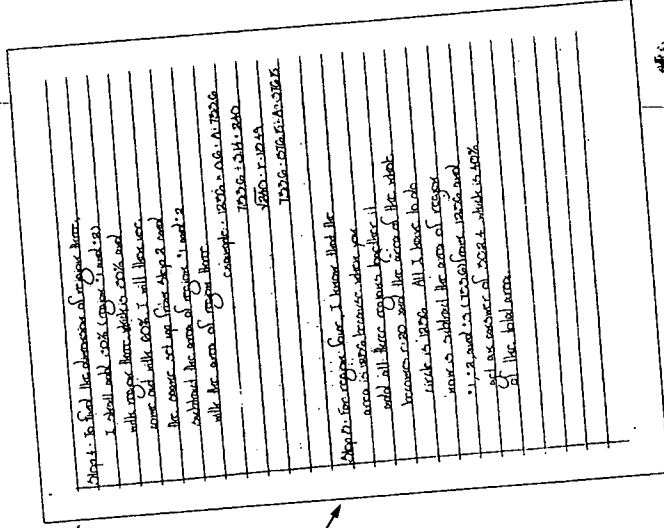 Step 4: To find the dimension of region three,
I shall add 30% (region #1 and #2)
with region three which is 30% and
come out with 60%. I will then use
the same set up from step 2 and
subtract the area of region 1 and 2
with the area of region three
example: 1256 = 0.6 · A: 753.6
753.6 ÷ 3.14 = 240
√240 = r = 15.49
753.6 - 376.8 = A = 376.8
Step 5: For region four, I know that the
area is 1256 because when you
add all three regions together it
becomes r=20 and the area of the whole
circle is 1256. All I have to do
now is subtract the area of region
#1, #2 and #3 (753.6) from 1256 and
get an answer of 502.4 which is 40%
of the total area.